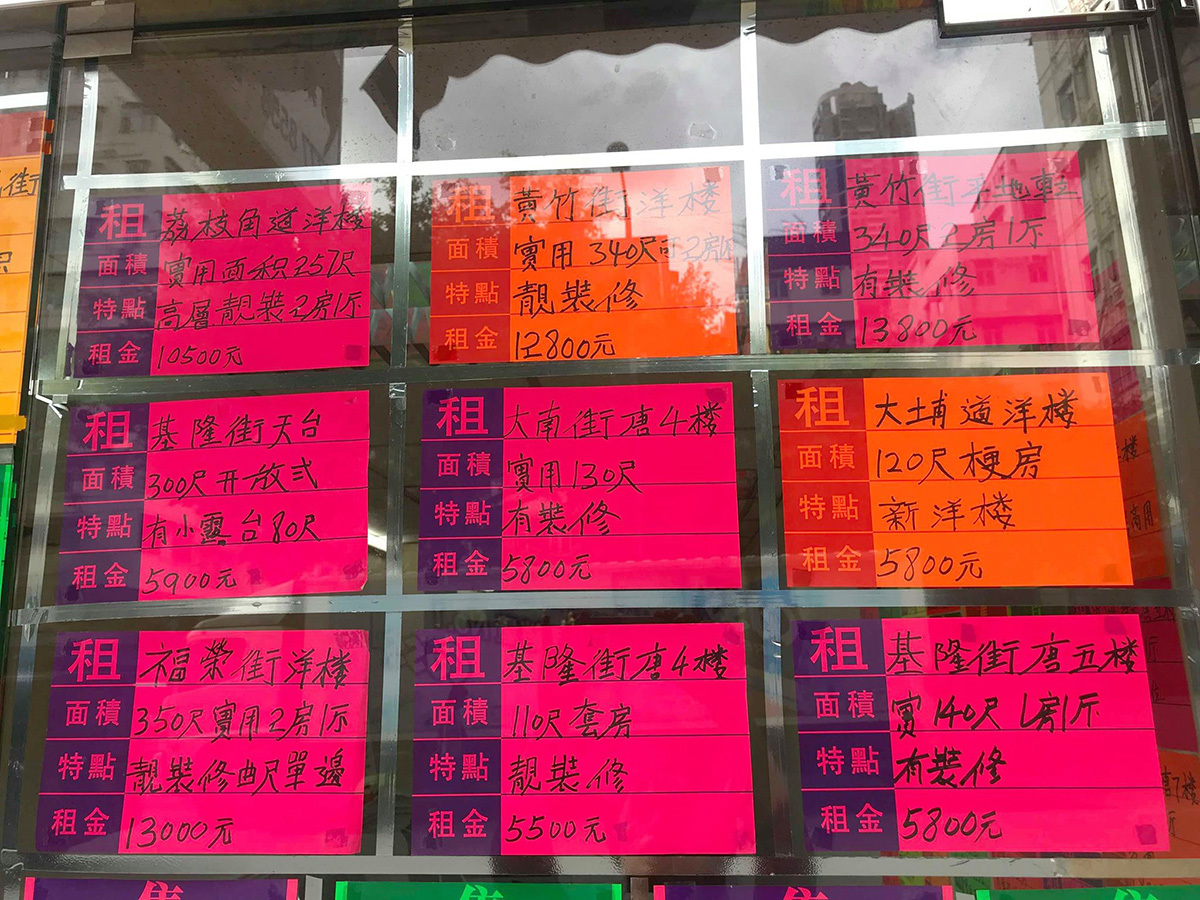 租 荔枝角道洋楼
面積 實用面积257尺
特點 高層靚裝2房1厅
租金 10500元
租 黃竹街洋楼
面積 實用340尺可2房厅
特點 靚裝修
租金 12800元
租 黃竹街平地車立
面積 340尺2房1厅
特點 有裝修
租金 13800元
租 基隆街天台
面積 300尺开放式
特點 有小露台80尺
租金 5900元
租 大南街唐4楼
面積 實用130尺
特點 有裝修
租金 5800元
租 大埔道洋楼
面積 120尺梗房
特點 新洋楼
租金 5800元
租 福榮街洋楼
面積 350尺實用2房1厅
特點 靚裝修曲尺單邊
租金 13000元
租 基隆街唐4楼
面積 110尺套房
特點 靚裝修
租金 5500元
租 基隆街唐五楼
面積 實140尺1房1厅
特點 有裝修
租金 5800元
街
尺